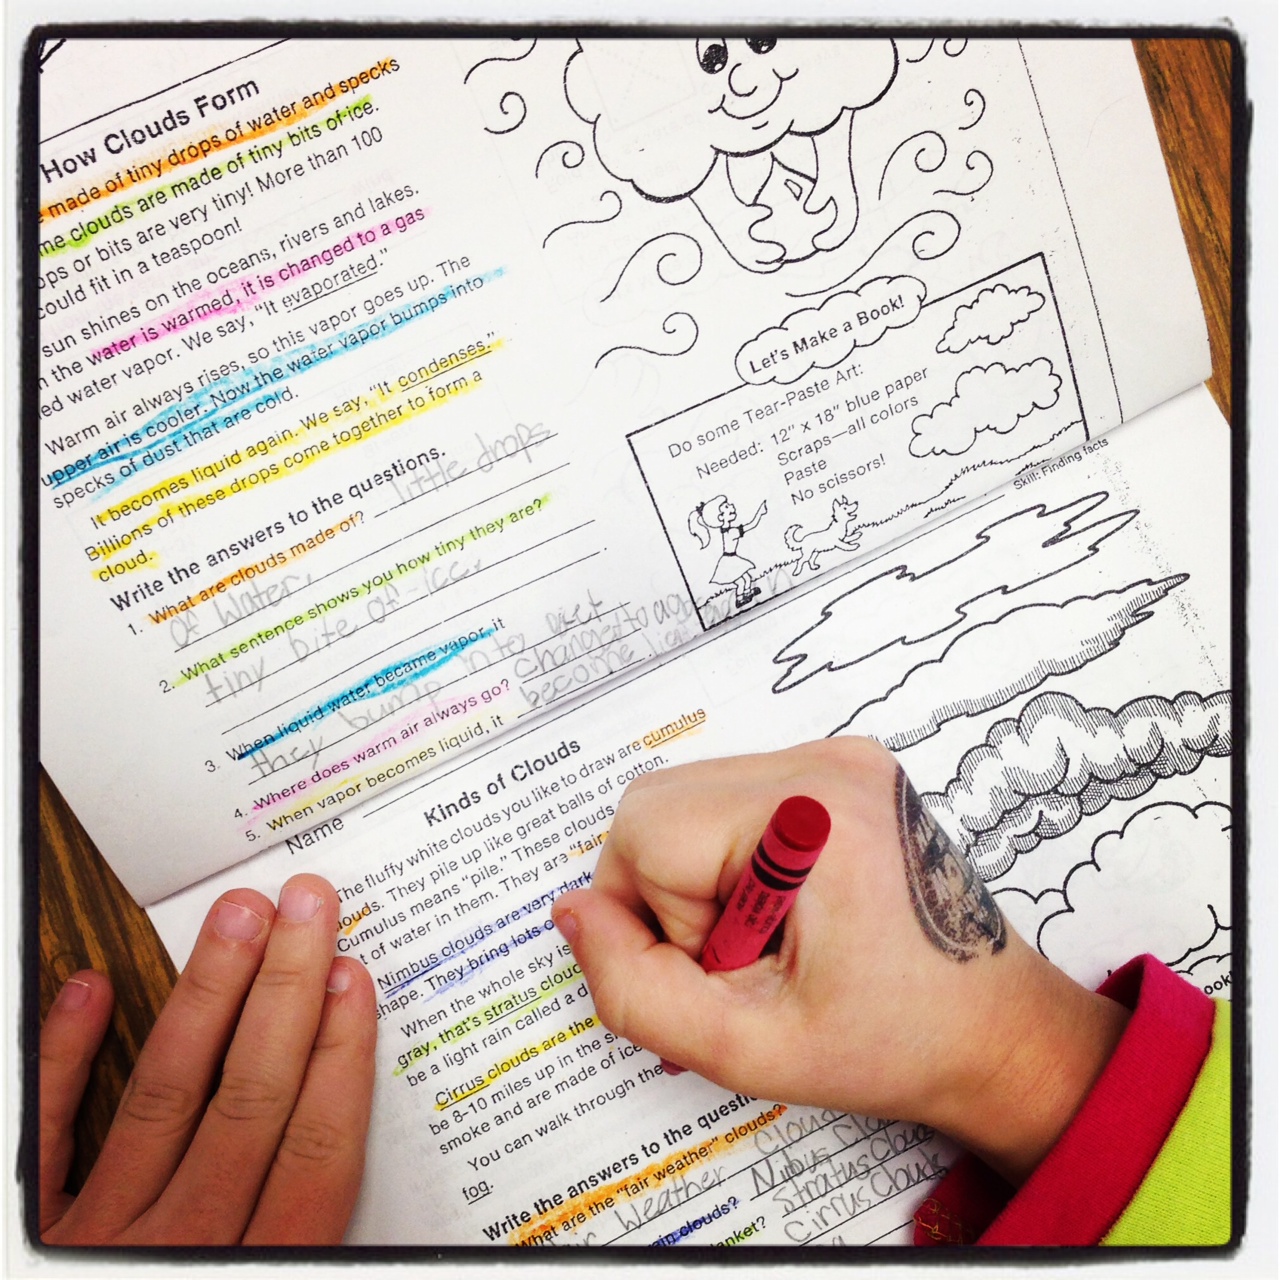 How Clouds Form
made of tiny drops of water and specks
clouds are made of tiny bits of ice.
or bits are very tiny! More than 100
could fit in a teaspoon!
sun shines on the oceans, rivers and lakes.
the water is warmed, it is changed to a gas
water vapor. We say, "It evaporated."
Warm air always rises, so this vapor goes up. The
upper air is cooler. Now the water vapor bumps into
specks of dust that are cold.
It becomes liquid again. We say, "It condenses."
Billions of these drops come together to form a
cloud.
Write the answers to the questions.
1. What are clouds made of? little drops
of water.
2. What sentence shows you how tiny they are?
tiny bite of icc.
3. When liquid water became vapor, it
they bump into
4. Where does warm air always go?
5. When vapor becomes liquid, it become
Let's Make a Book!
Do some Tear-Paste Art:
Needed: 12" x 18" blue paper
Scraps—all colors
Paste
No scissors!
Skill: Finding facts
Name
Kinds of Clouds
The fluffy white clouds you like to draw are cumulus
clouds. They pile up like great balls of cotton.
Cumulus means "pile." These clouds
of water in them. They are "fair
Nimbus clouds are very dark
shape. They bring lots
When the whole sky is
gray, that's stratus
be a light rain called a
Cirrus clouds are the
be 8-10 miles up in the
smoke and are made of ice
You can walk through the
fog.
Write the answers to the
What are the "fair weather" clouds?
Weather
clouds? Nimbus
Stratus Clouds
Cirrus Clouds